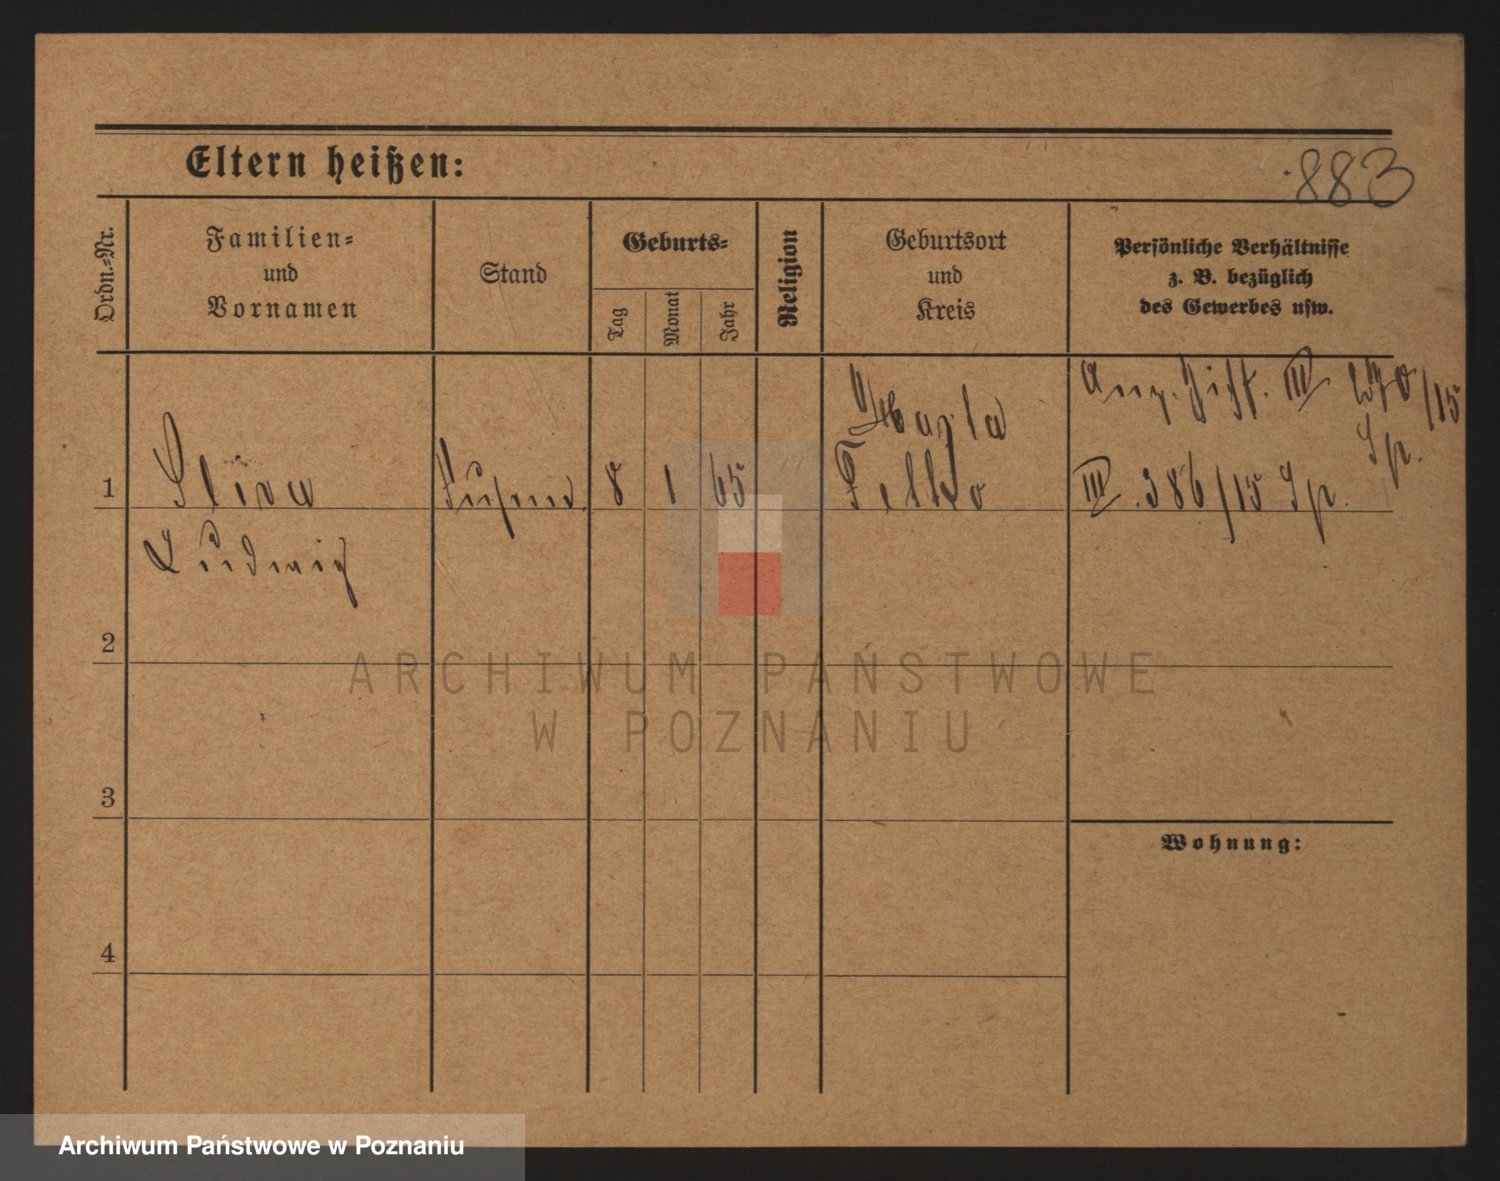 Eltern heißen:
883
Ordn.-Nr.
Familien-
und
Vornamen
Stand
Geburts-
Tag
Monat
Jahr
Religion
Geburtsort
und
Kreis
Persönliche Verhältnisse
z. B. bezüglich
des Gewerbes usw.
1
Sliva
Ludwig
8
1
65
III
/15
Sp.
III. 386/15 Sp.
2
3
4
Wohnung:
ARCHIWUM PAŃSTWOWE
W POZNANIU
Archiwum Państwowe w Poznaniu